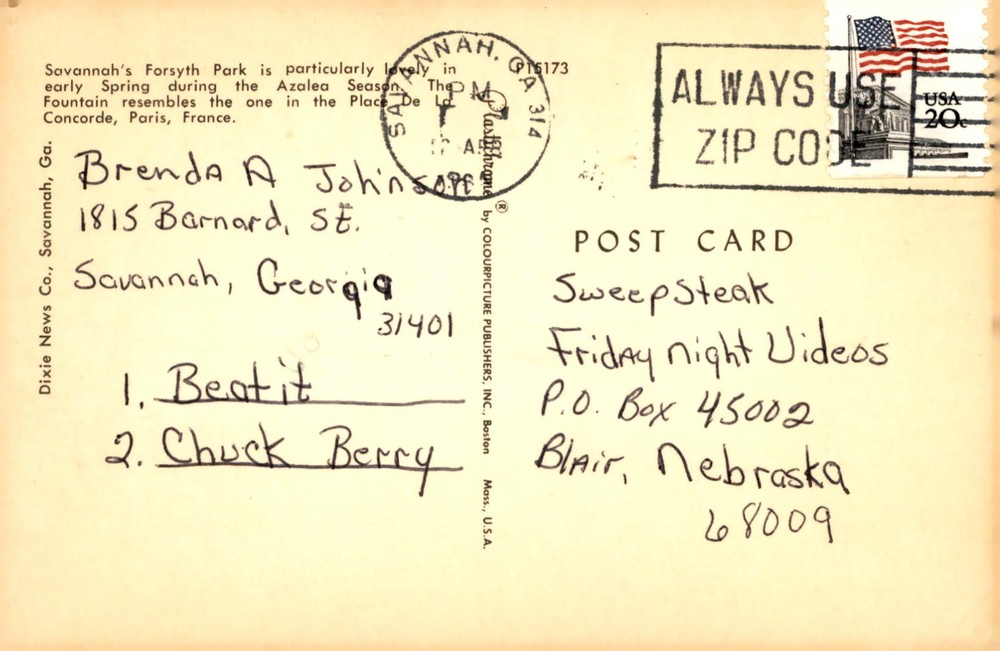 Savannah's Forsyth Park is particularly lovely in
early Spring during the Azalea Season. The
Fountain resembles the one in the Place De La
Concorde, Paris, France.
P15173
SAVANNAH, GA 314
PM
ALWAYS USE
ZIP CODE
USA
20c
Dixie News Co., Savannah, Ga.
Brenda A Johnson
1815 Barnard, St.
Savannah, Georgia
31401
1. Beat it
2. Chuck Berry
Plastichrome ® by COLOURPICTURE PUBLISHERS, INC., Boston Mass., U.S.A.
POST CARD
Sweepsteak
Friday night Videos
P.O. Box 45002
Blair, Nebraska
68009